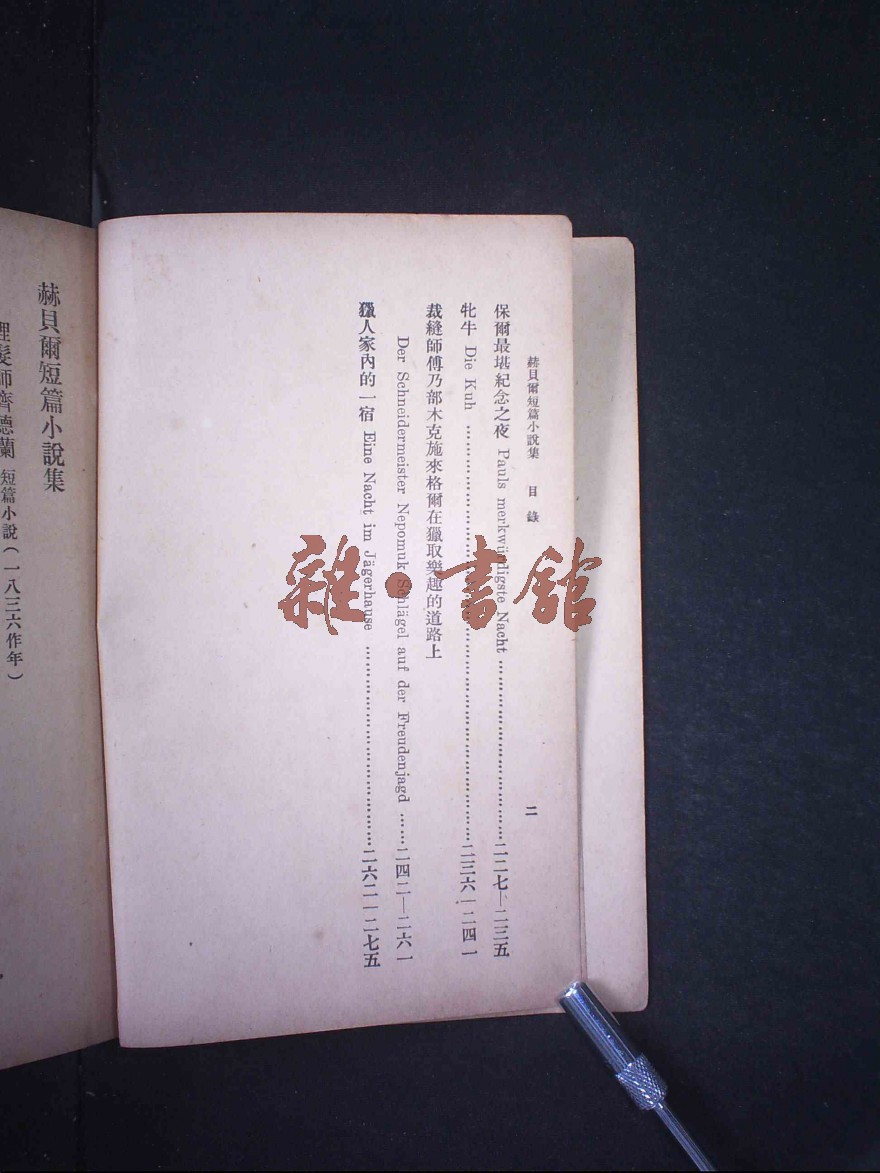 赫貝爾短篇小說集 目錄 二
保爾最堪紀念之夜 Pauls merkwürdigste Nacht ……二二七—二三五
牝牛 Die Kuh ……二三六—二四一
裁縫師傅乃部木克施來格爾在獵取樂趣的道路上
Der Schneidermeister Nepomuk Schlägel auf der Freudenjagd ……二四二—二六一
獵人家內的一宿 Eine Nacht im Jägerhause ……二六二—二七五
赫貝爾短篇小說集
理髮師齊德蘭 短篇小說(一八三六作年)
雜·書館